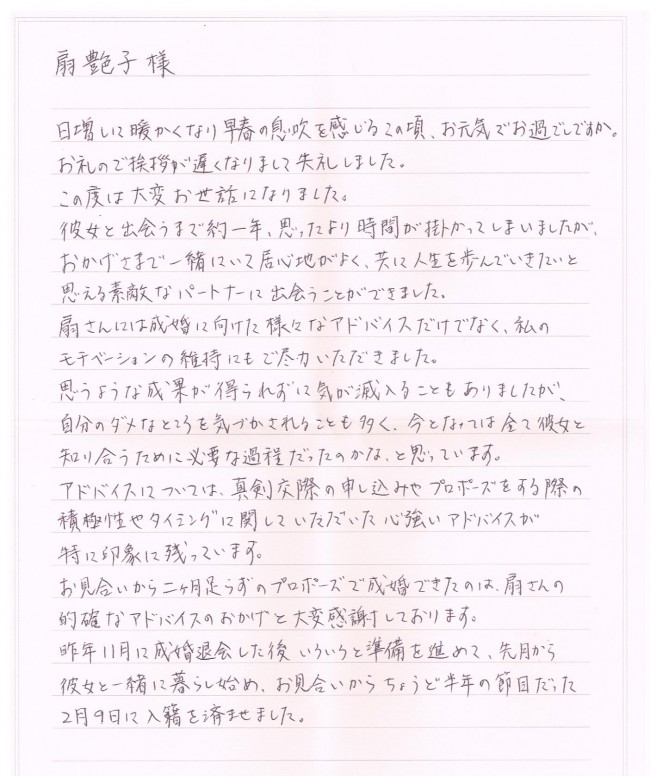 扇 艶子 様
日増しに暖かくなり早春の息吹を感じるこの頃、お元気でお過ごしですか。
お礼のご挨拶が遅くなりまして失礼しました。
この度は大変お世話になりました。
彼女と出会うまで約一年、思ったより時間が掛かってしまいましたが、
おかげさまで一緒にいて居心地がよく、共に人生を歩んでいきたいと
思える素敵なパートナーに出会うことができました。
扇さんには成婚に向けた様々なアドバイスだけでなく、私の
モチベーションの維持にもご尽力いただきました。
思うような成果が得られずに気が滅入ることもありましたが、
自分のダメなところを気づかされることも多く、今となっては全て彼女と
知り合うために必要な過程だったのかな、と思っています。
アドバイスについては、真剣交際の申し込みやプロポーズをする際の
積極性やタイミングに関していただいた心強いアドバイスが
特に印象に残っています。
お見合いから二ヶ月足らずのプロポーズで成婚できたのは、扇さんの
的確なアドバイスのおかげと大変感謝しております。
昨年11月に成婚退会した後いろいろと準備を進めて、先月から
彼女と一緒に暮らし始め、お見合いからちょうど半年の節目だった
2月9日に入籍を済ませました。